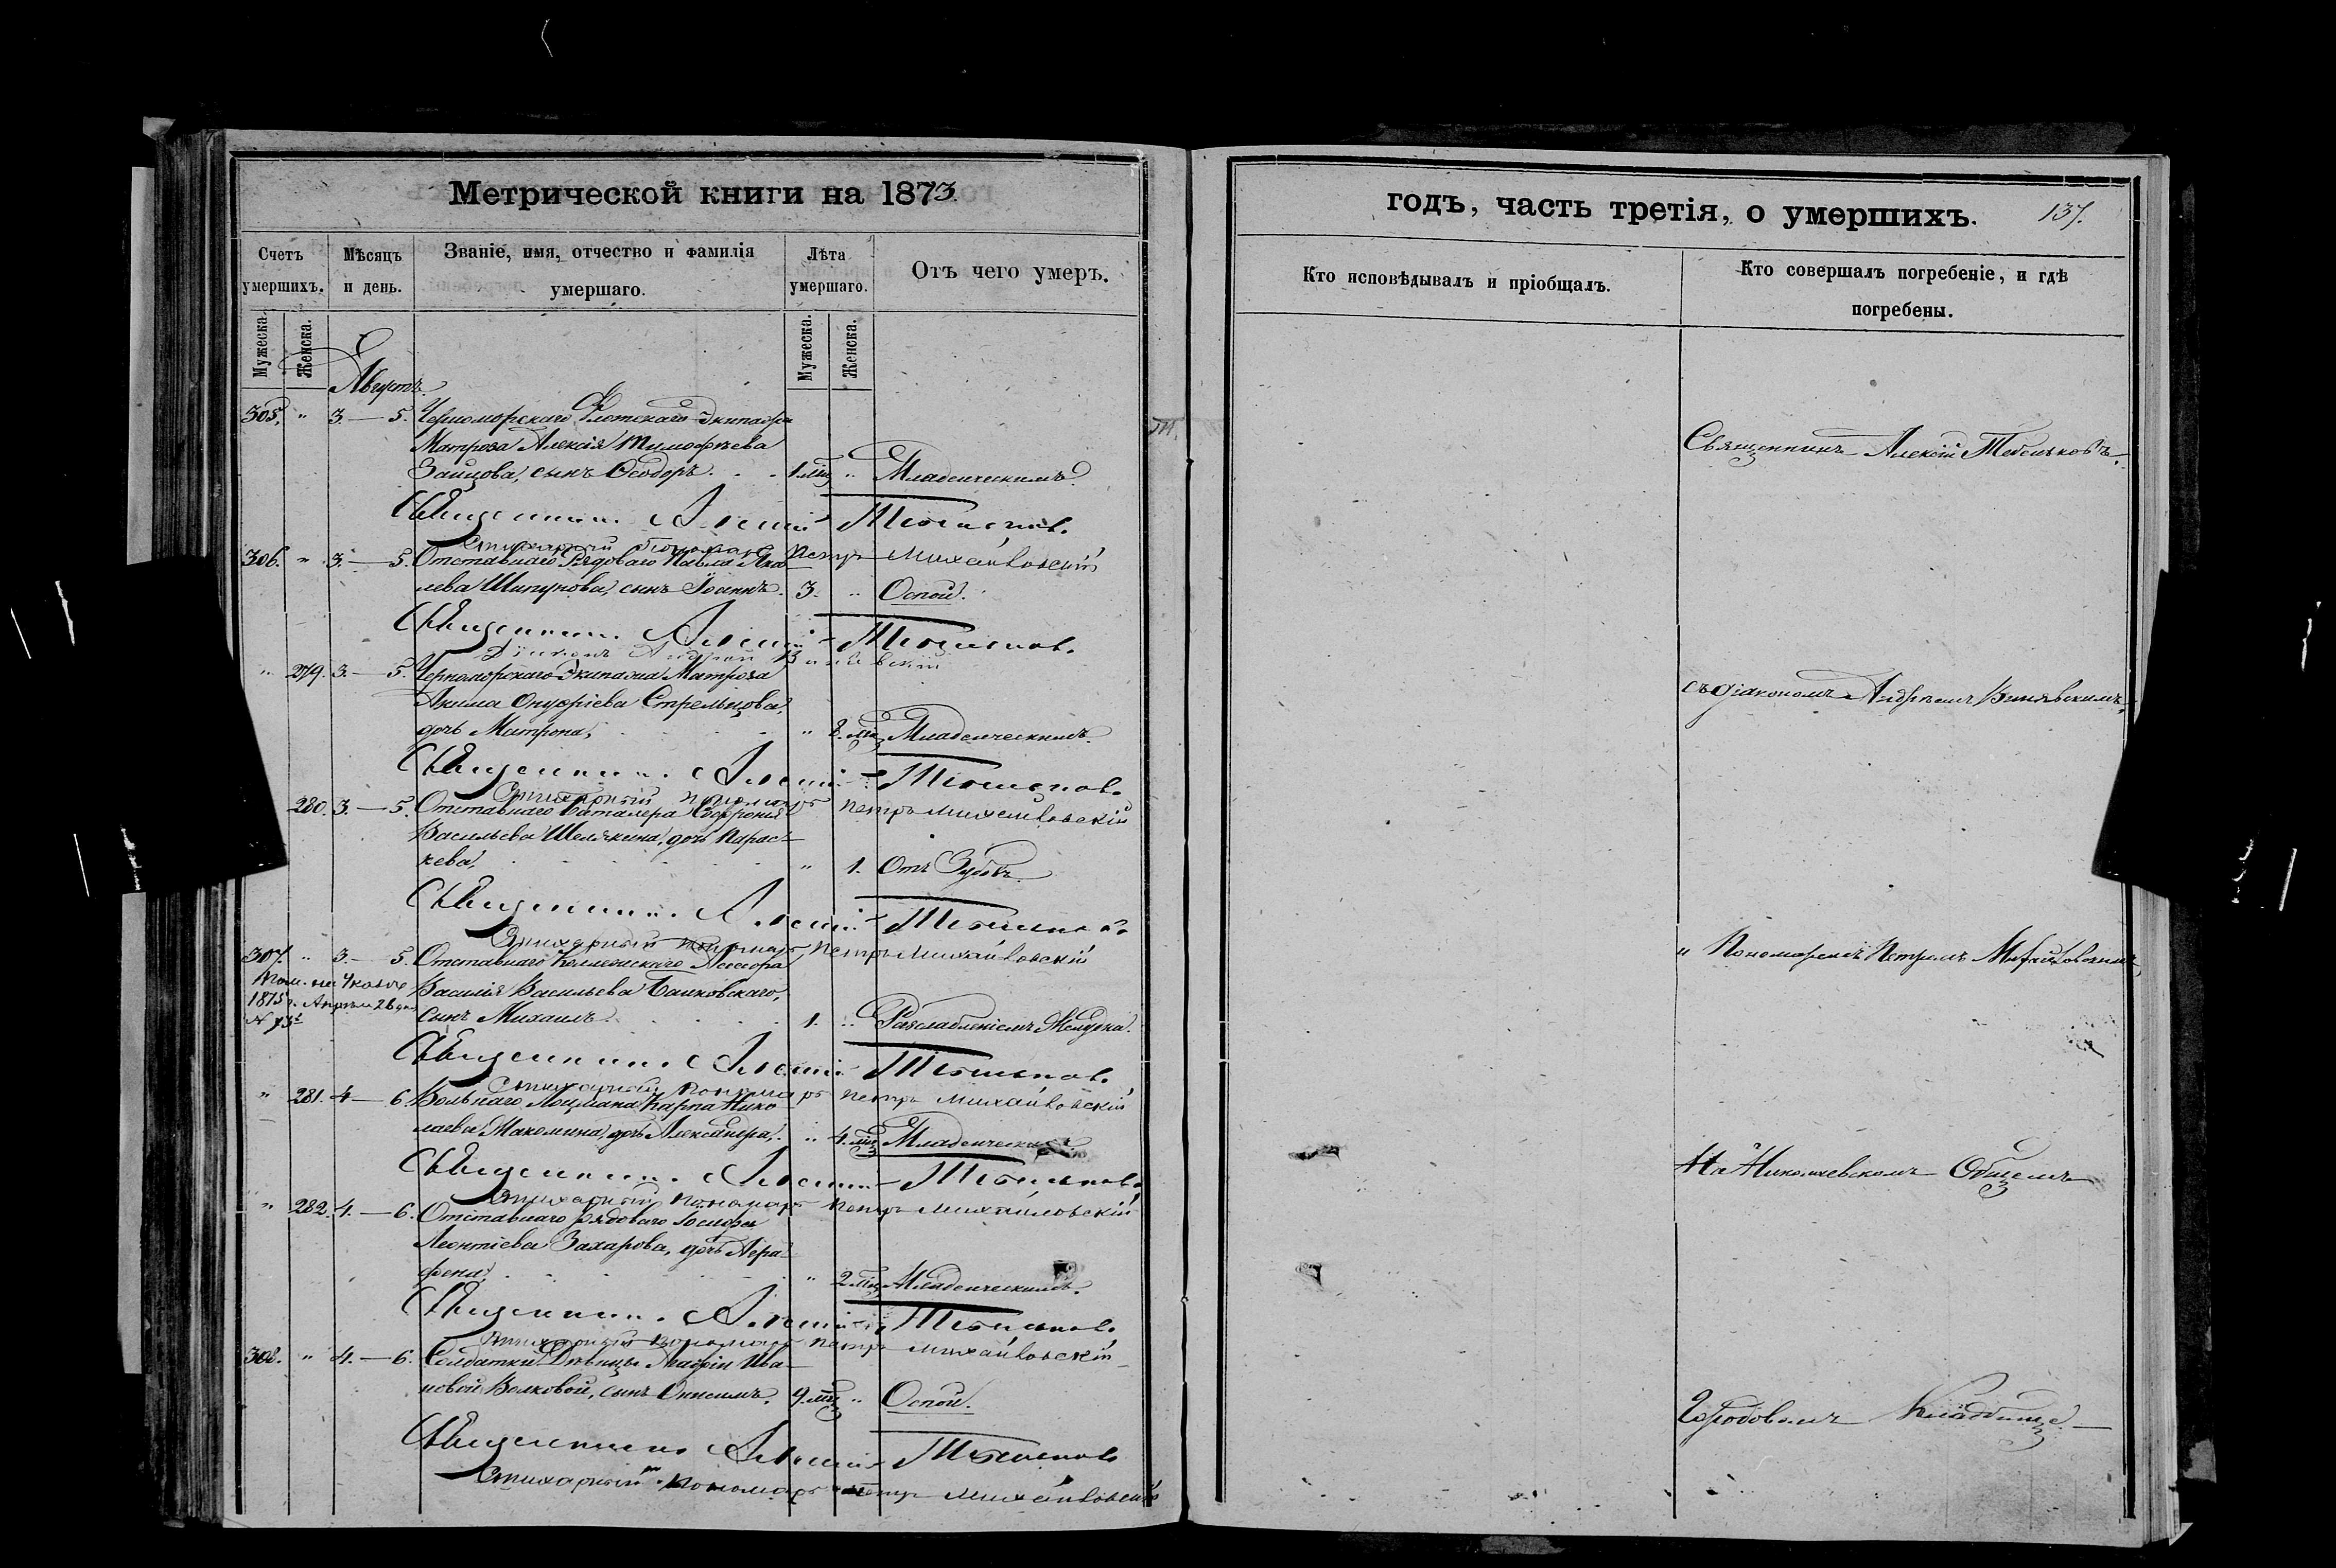 Метрической книги на 1873.
Счетъ умершихъ.
Мѣсяцъ и день.
Званіе, имя, отчество и фамилія умершаго.
Лѣта умершаго.
Отъ чего умеръ.
Мужеска.
Женска.
Мужеска.
Женска.
Августъ.
305. " 3.—5. Черноморскаго Флотскаго Экипажа
Матроза Алексія Тимофѣева
Зайцова, сынъ Ѳеодоръ. 1 мц. " Младенческимъ.
Священникъ Алексій
Стихарный Пономарь Петръ Михайловскій
306. " 3.—5. Отставнаго Рядоваго Павла Яко
лева Шипунова, сынъ Іоаннъ. 3. " Оспой.
Священникъ Алексій
Діаконъ Андрей
" 279. 3.—5. Черноморскаго Экипажа Матроза
Акима Онуфріева Стрельцова,
дочь Матрона, " 8. мц. Младенческимъ.
Священникъ Алексій
Стихарный пономарь Петръ Михайловскій
280. 3.—5. Отставнаго Баталера Софронія
Васильева Шелякина, дочь Парас-
кева, " 1. Отъ Зубовъ.
Священникъ Алексій
Стихарный пономарь Петръ Михайловскій
307. " 3.—5. Отставнаго Коллежскаго Асессора
Василія Васильева Баиковскаго,
сынъ Михаилъ. 1. " Разслабленіемъ Желудка.
1875 г. Апрѣля 26 дня
Священникъ Алексій
Стихарный пономарь Петръ Михайловскій
" 281. 4—6. Вольнаго Лоцмана Карпа Нико
лаева Макемина, дочь Александра, " 4. мц. Младенческимъ.
Священникъ Алексій
Стихарный пономарь Петръ Михайловскій
" 282. 4.—6. Отставнаго рядоваго Іосифа
Леонтіева Захарова, дочь Агра
фена, " 2 мц. Младенческимъ.
Священникъ Алексій
Стихарный пономарь Петръ Михайловскій
308. " 4.—6. Солдатки Дѣвицы Марфіи Ива-
новой Волковой, сынъ Онисимъ, 9. мц. " Оспой.
Священникъ Алексій
Стихарный пономарь Петръ Михайловскій
годъ, часть третія, о умершихъ. 137.
Кто исповѣдывалъ и пріобщалъ.
Кто совершалъ погребеніе, и гдѣ погребены.
Священникъ Алексій
съ діакономъ Андреемъ
" Пономаремъ Петромъ Михайловскимъ,
На Николаевскомъ Общемъ
Городовомъ Кладбище.